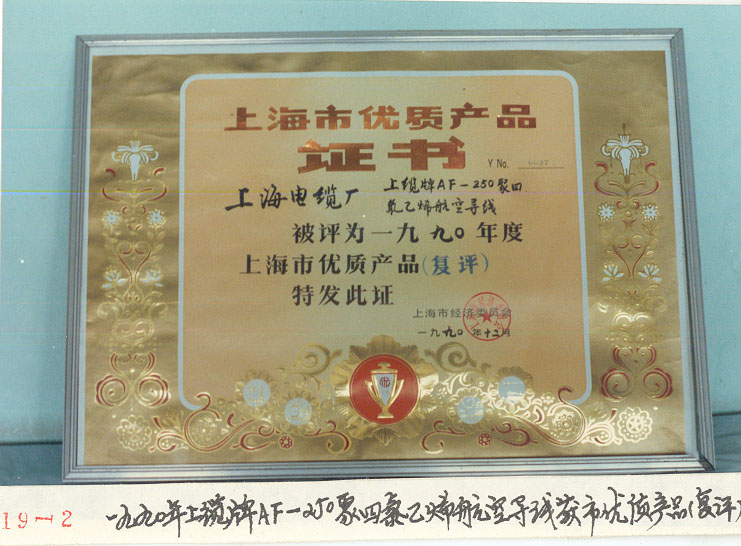 上海市优质产品
证书
Y No.
上海电缆厂
上缆牌AF-250聚四
氟乙烯航空导线
被评为一九九〇年度
上海市优质产品(复评)
特发此证
上海市经济委员会
一九九〇年十二月
19-2 一九九〇年上缆牌AF-250聚四氟乙烯航空导线获市优质产品(复评)